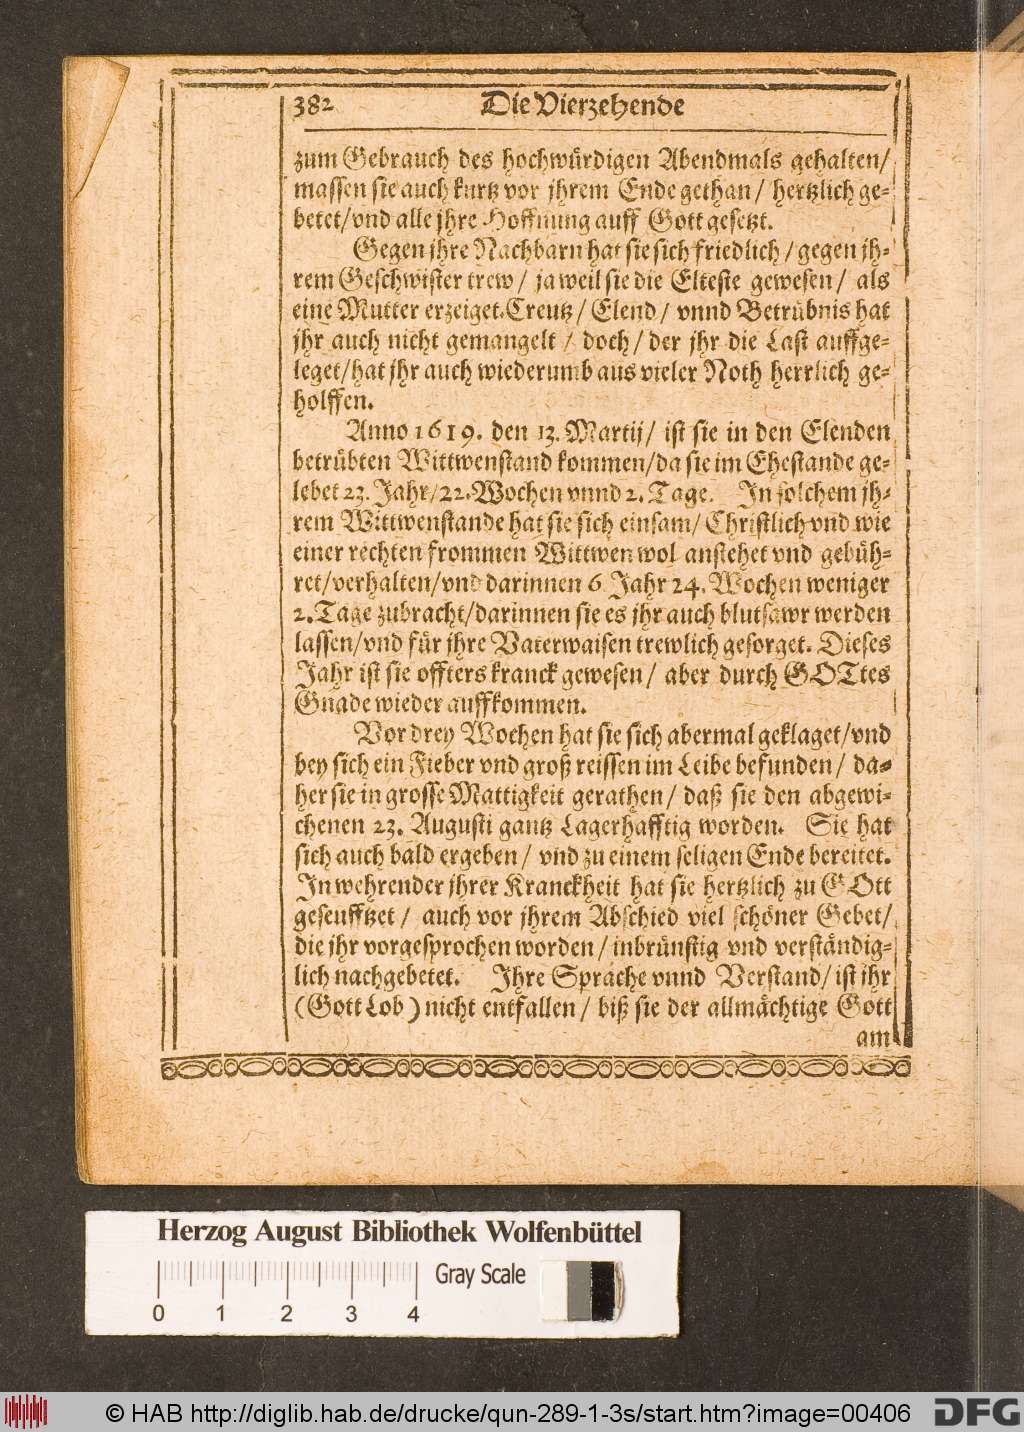 382 Die Vierzehende
zum Gebrauch des hochwürdigen Abendmals gehalten/
massen sie auch kurtz vor jhrem Ende gethan / hertzlich ge-
betet/vnd alle jhre Hoffnung auff Gott gesetzt.
Gegen jhre Nachbarn hat sie sich friedlich / gegen jh-
rem Geschwister trew / ja weil sie die Elteste gewesen / als
eine Mutter erzeiget. Creutz / Elend / vnnd Betrübnis hat
jhr auch nicht gemangelt / doch / der jhr die Last auffge-
leget/hat jhr auch wiederumb aus vieler Noth herrlich ge-
holffen.
Anno 1619. den 13. Martij/ ist sie in den Elenden
betrübten Wittwenstand kommen/da sie im Ehestande ge-
lebet 23. Jahr/22. Wochen vnnd 2. Tage. In solchem jh-
rem Wittwenstande hat sie sich einsam/ Christlich vnd wie
einer rechten frommen Wittwen wol anstehet vnd gebüh-
ret/verhalten/vnd darinnen 6. Jahr 24. Wochen weniger
2. Tage zubracht/darinnen sie es jhr auch blutsawr werden
lassen/vnd für jhre Vaterwaisen trewlich gesorget. Dieses
Jahr ist sie offters kranck gewesen / aber durch GOTtes
Gnade wieder auffkommen.
Vor drey Wochen hat sie sich abermal geklaget/vnd
bey sich ein Fieber vnd groß reissen im Leibe befunden / da-
her sie in grosse Mattigkeit gerathen / daß sie den abgewi-
chenen 23. Augusti gantz Lagerhafftig worden. Sie hat
sich auch bald ergeben / vnd zu einem seligen Ende bereitet.
In wehrender jhrer Kranckheit hat sie hertzlich zu GOtt
geseufftzet / auch vor jhrem Abschied viel schöner Gebet/
die jhr vorgesprochen worden / inbrünstig vnd verständig-
lich nachgebetet. Ihre Sprache vnnd Verstand/ ist jhr
(Gott Lob) nicht entfallen / biß sie der allmächtige Gott
am
Herzog August Bibliothek Wolfenbüttel
Gray Scale
0 1 2 3 4
© HAB http://diglib.hab.de/drucke/qun-289-1-3s/start.htm?image=00406 DFG